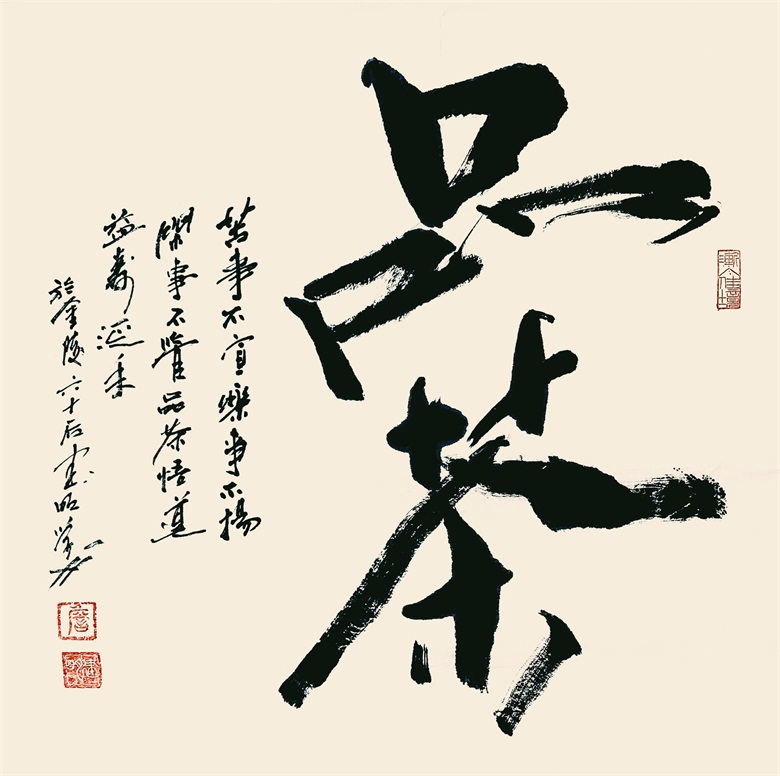 品茶
苦事不宣樂事不揚
閑事不管品茶悟道
益壽延年
於金陵六十后